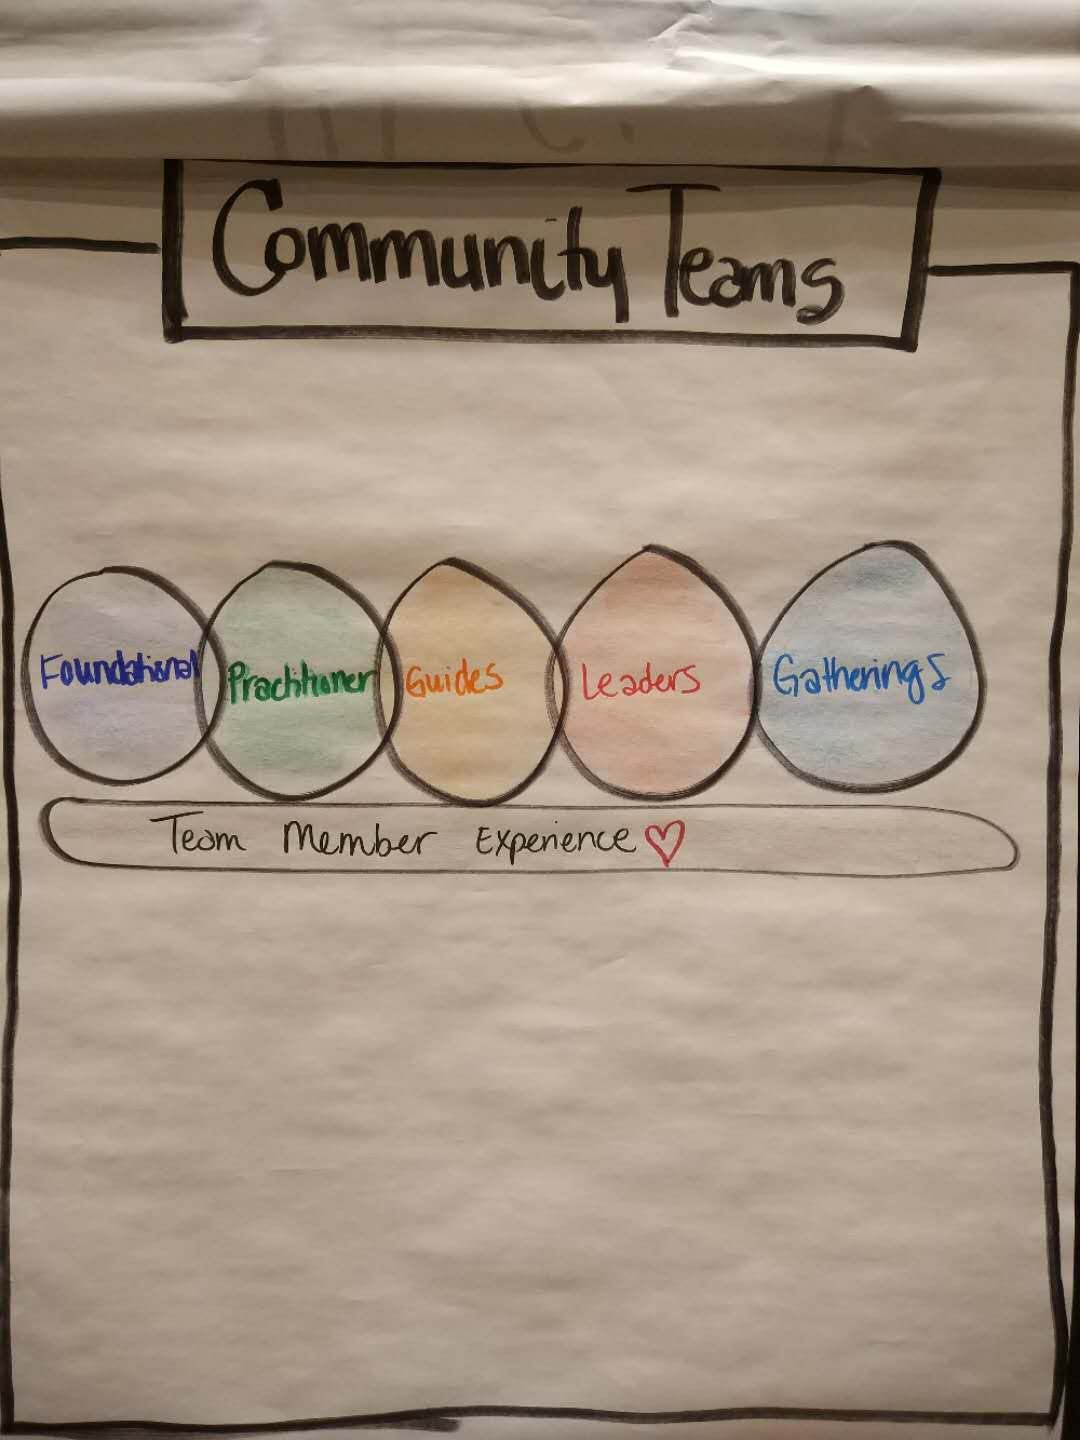 Community Teams
Foundational
Practitioner
Guides
Leaders
Gatherings
Team Member Experience